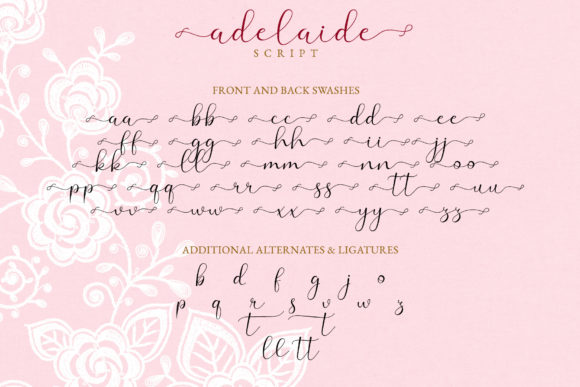 adelaide
SCRIPT
FRONT AND BACK SWASHES
aa bb cc dd ee
ff gg hh ii jj
kk ll mm nn oo
pp qq rr ss tt uu
vv ww xx yy zz
ADDITIONAL ALTERNATES & LIGATURES
b d f g j o
p q r s v w z
t t
ll tt